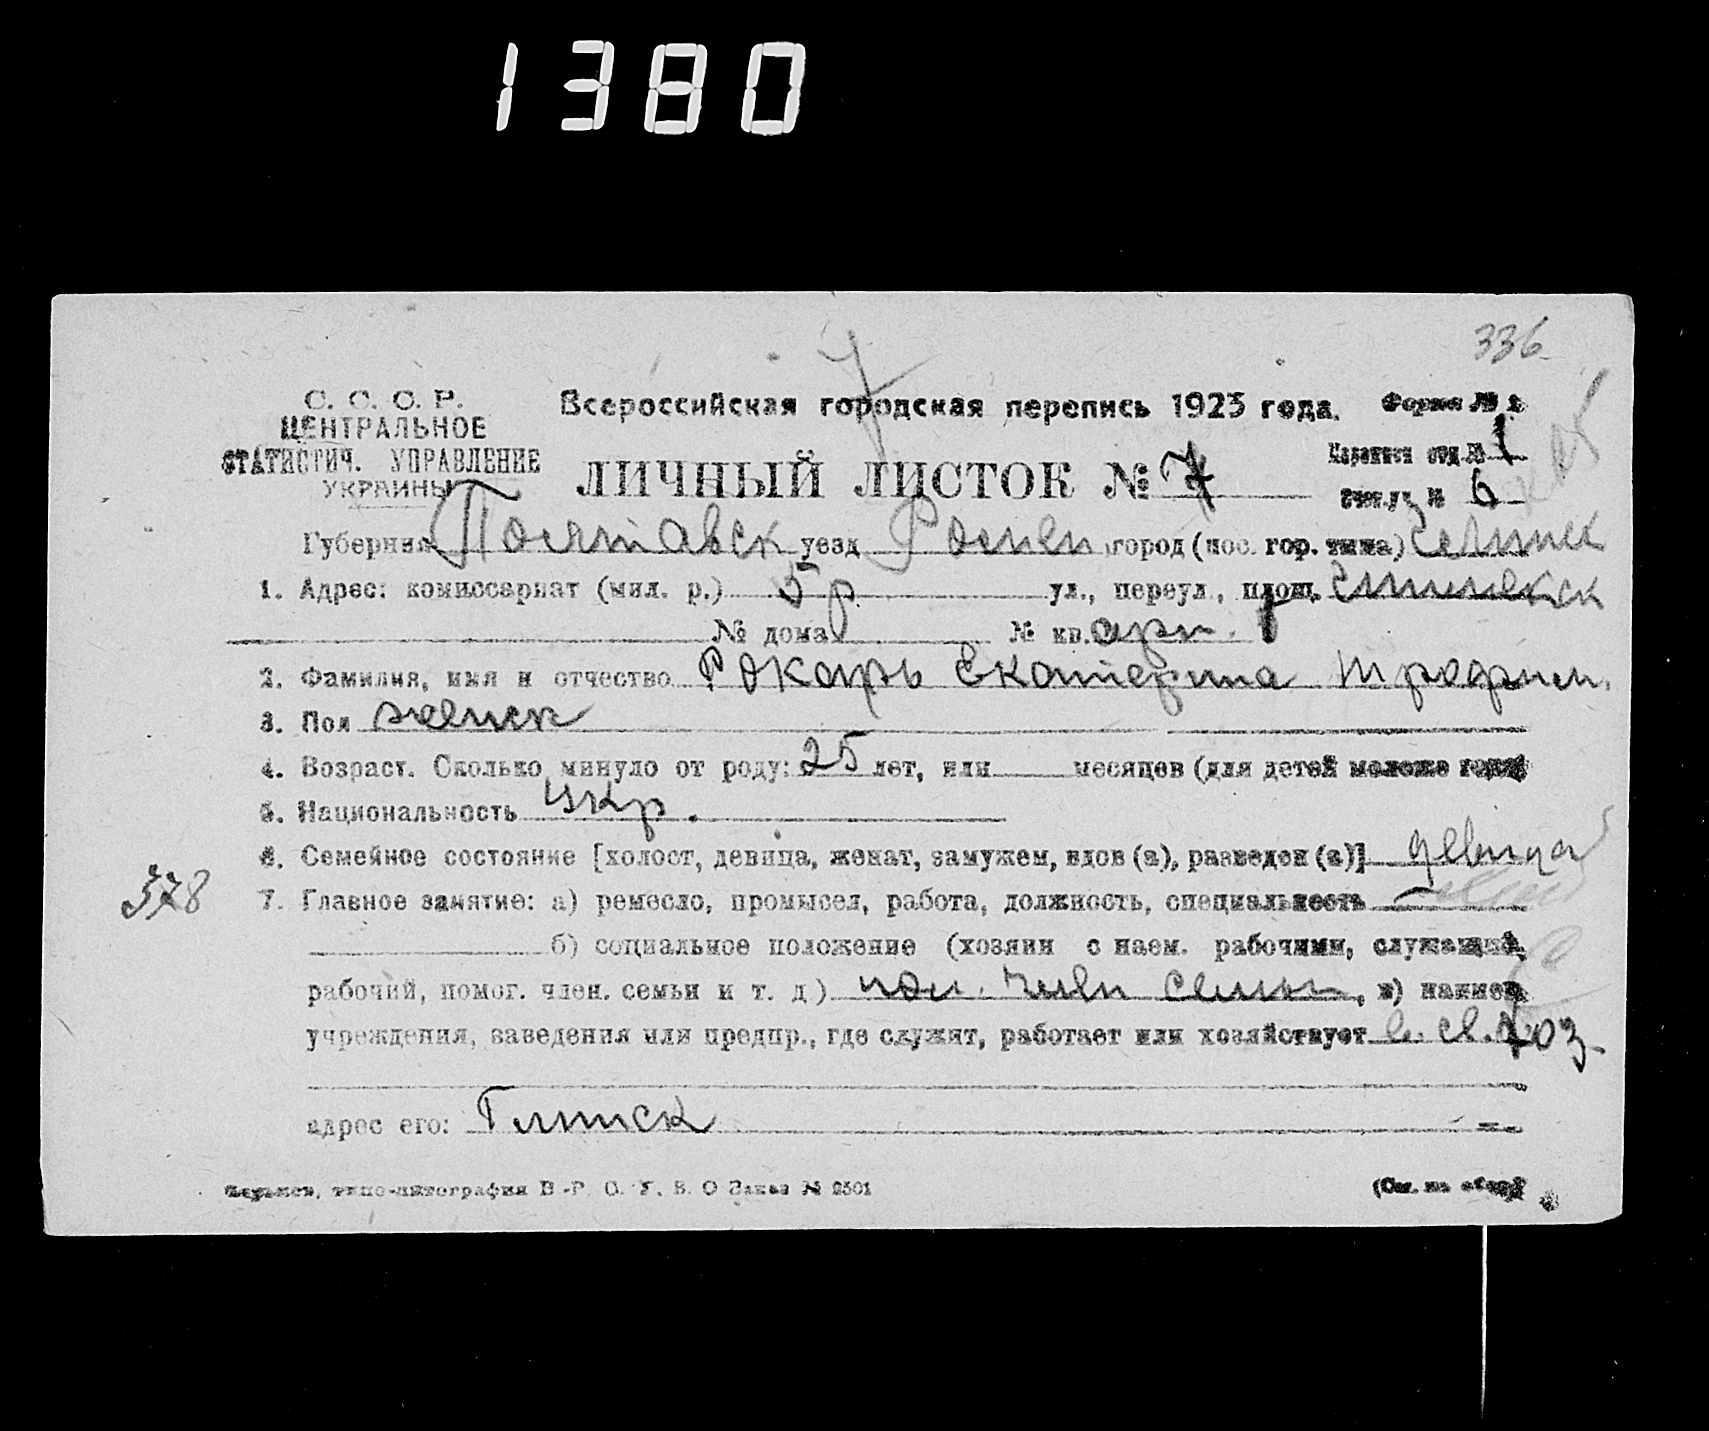 1380
336
С. С. С. Р.
ЦЕНТРАЛЬНОЕ
СТАТИСТИЧ. УПРАВЛЕНИЕ
УКРАИНЫ
Всероссийская городская перепись 1923 года.
Форма № 1
ЛИЧНЫЙ ЛИСТОК № 7
отд. № 1
№ 6
Губерния Полтавск уезд Ромен город (пос. гор. типа)
1. Адрес: комиссариат (мил. р.) 5 р ул., переул., площ.
№ дома № кв.
2. Фамилия, имя и отчество Рокарь Екатерина Трофим.
3. Пол женск
4. Возраст. Сколько минуло от роду: 25 лет, или месяцев (для детей моложе года)
5. Национальность Укр.
6. Семейное состояние [холост, девица, женат, замужем, вдов (а), разведен (а)] девица
378
7. Главное занятие: а) ремесло, промысел, работа, должность, специальность
б) социальное положение (хозяин с наем. рабочими, служащий,
рабочий, помог. член. семьи и т. д) пом. член семьи, в) наимен.
учреждения, заведения или предпр., где служит, работает или хозяйствует в св. хоз.
адрес его: Глинск
типо-литография В.-Р. О. У. В. О Заказ № 2501
(См. на обор.)